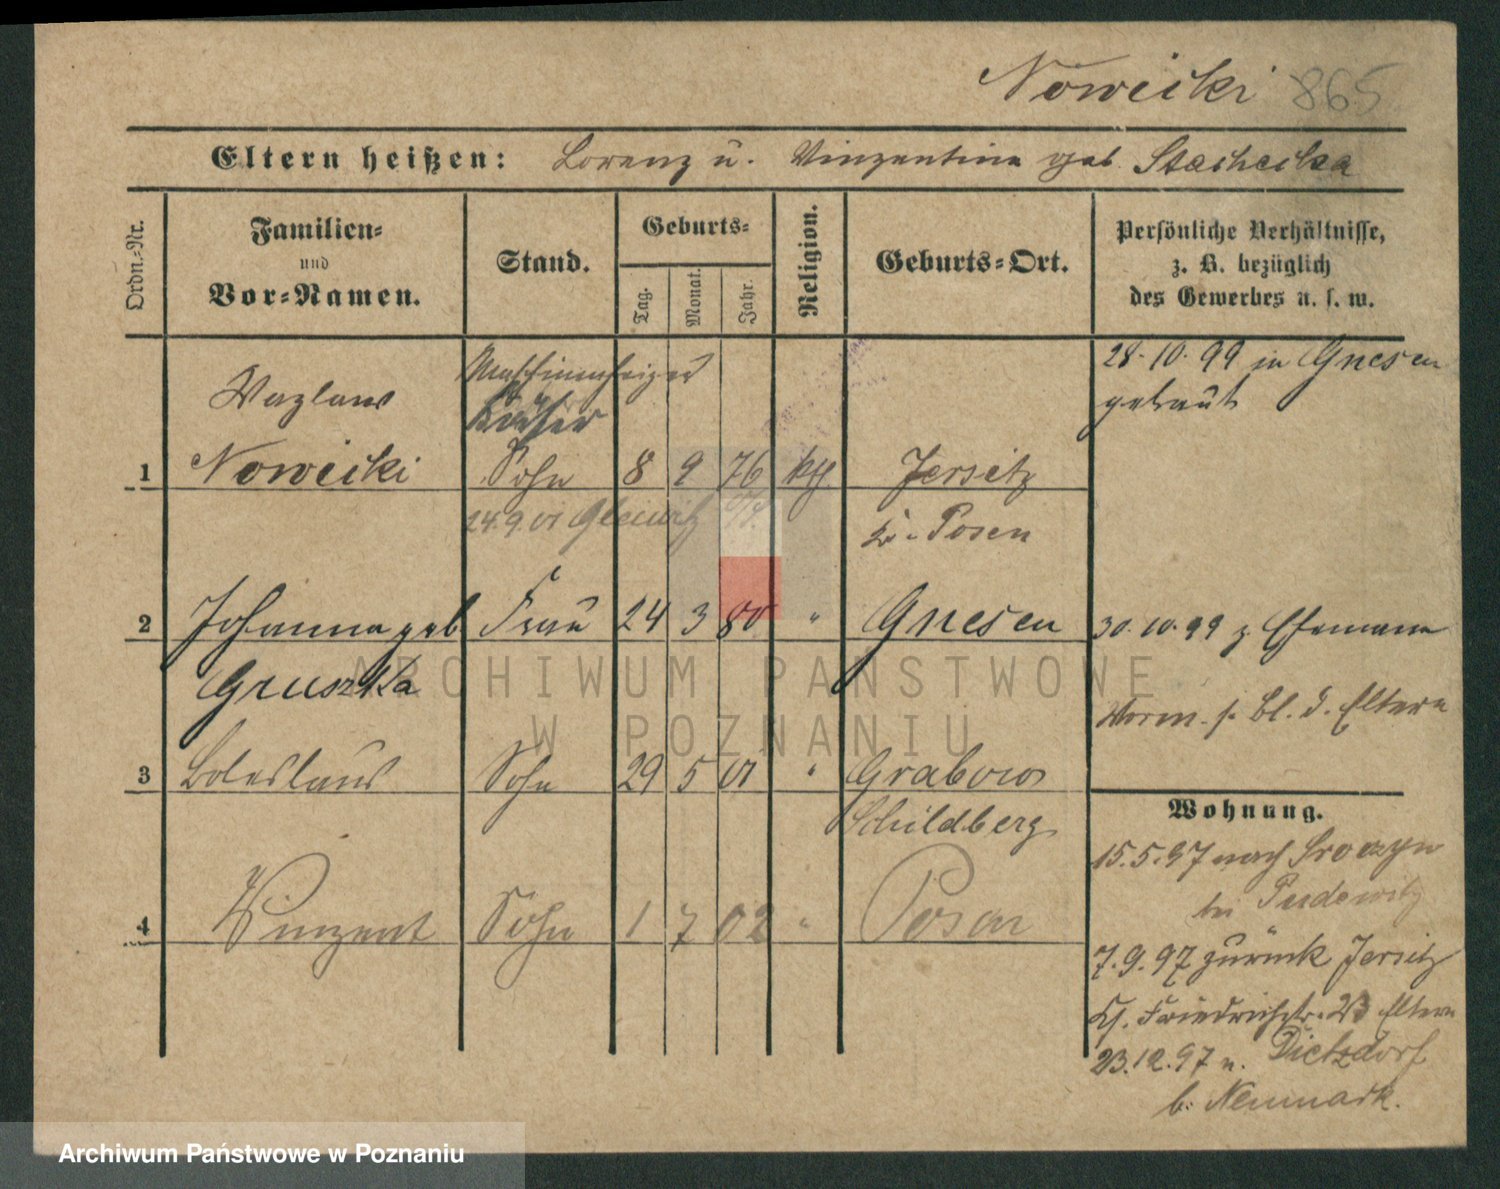 Nowicki 865
Eltern heißen: Lorenz u. Vinzentina geb. Stachecka
Ordn.-Nr.
Familien-
und
Vor-Namen.
Stand.
Geburts-
Tag.
Monat.
Jahr.
Religion.
Geburts-Ort.
Persönliche Verhältnisse,
z. B. bezüglich
des Gewerbes u. s. w.
Maschinenheizer
28.10.99 in Gnesen
Wazlaw
getraut
1 Nowicki Sohn 8 9 76 kth. Jersitz
24.9.01 Gleiwitz
Kr. Posen
2 Johanna geb Frau 24 3 80 " Gnesen 30.10.99 z. Ehemann
Gruszka
Worm. s. Bl. d. Eltern
3 Boleslaus Sohn 29 5 01 " Grabow
Schildberg
4 Vinzent Sohn 1 7 02 " Posen
Wohnung.
15.5.97 nach Sroczyn
bei Pudewitz
7.9.97 zurück Jersitz
Friedrichstr. 23 Eltern
23.12.97 n. Dietzdorf
b. Neumark.
ARCHIWUM PAŃSTWOWE
W POZNANIU
Archiwum Państwowe w Poznaniu